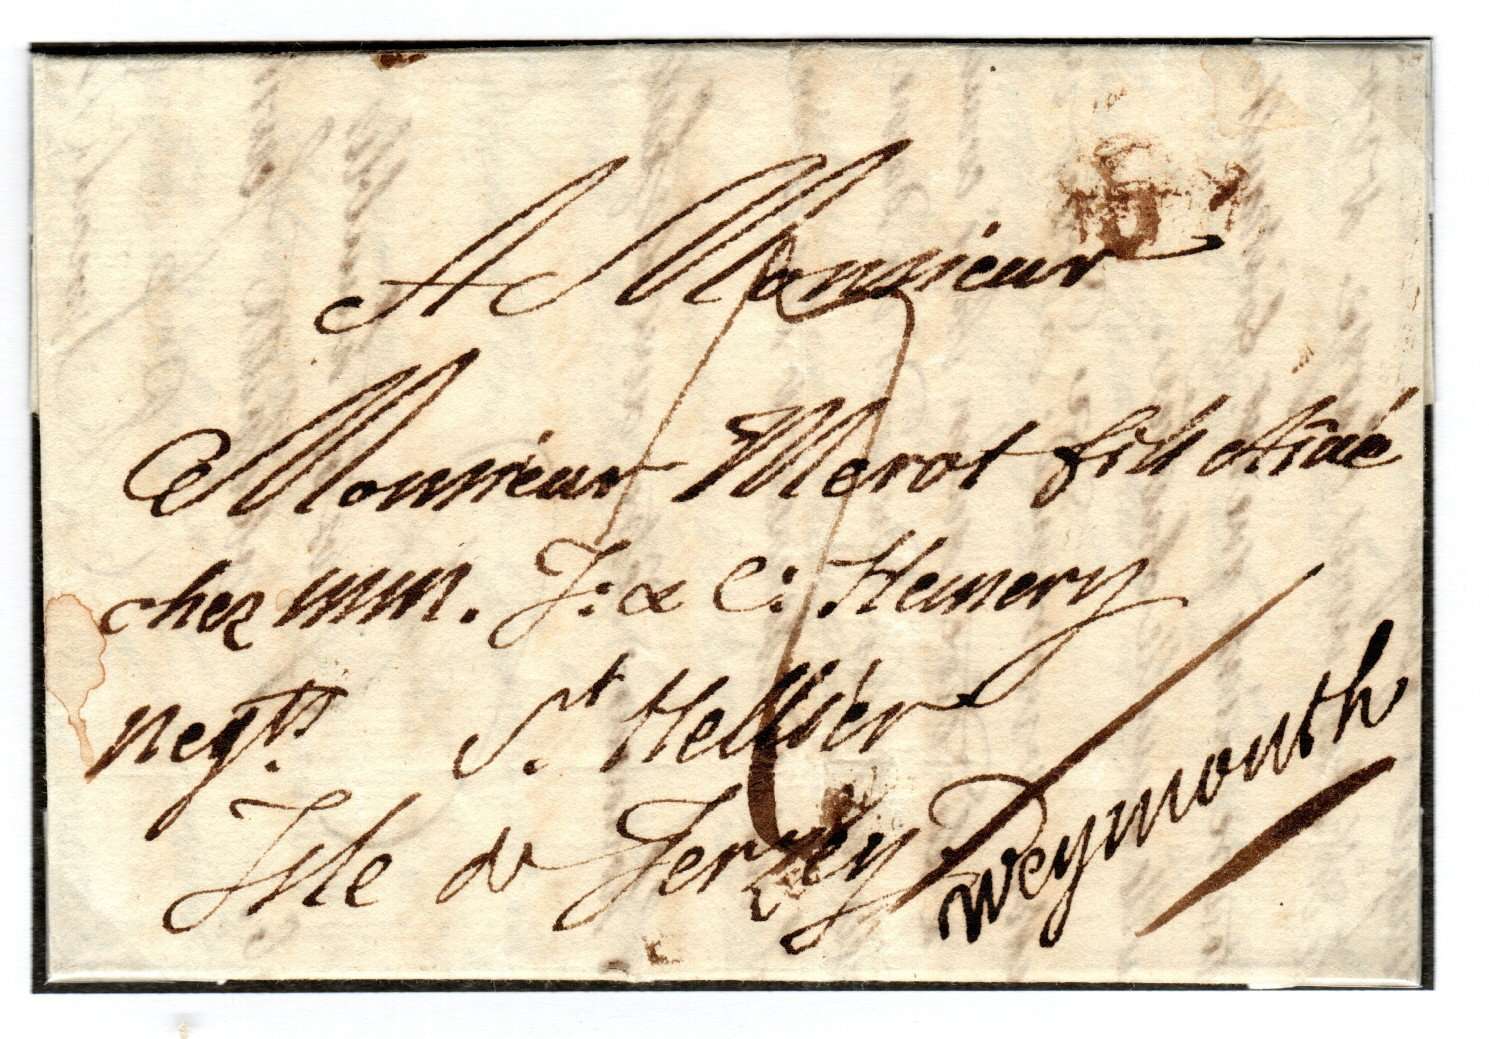 A Monsieur
Monsieur Merot fils Ainé
chez MM. J: & C: Hemery
Negts. St. Hellier
Isle de Jersey
Weymouth